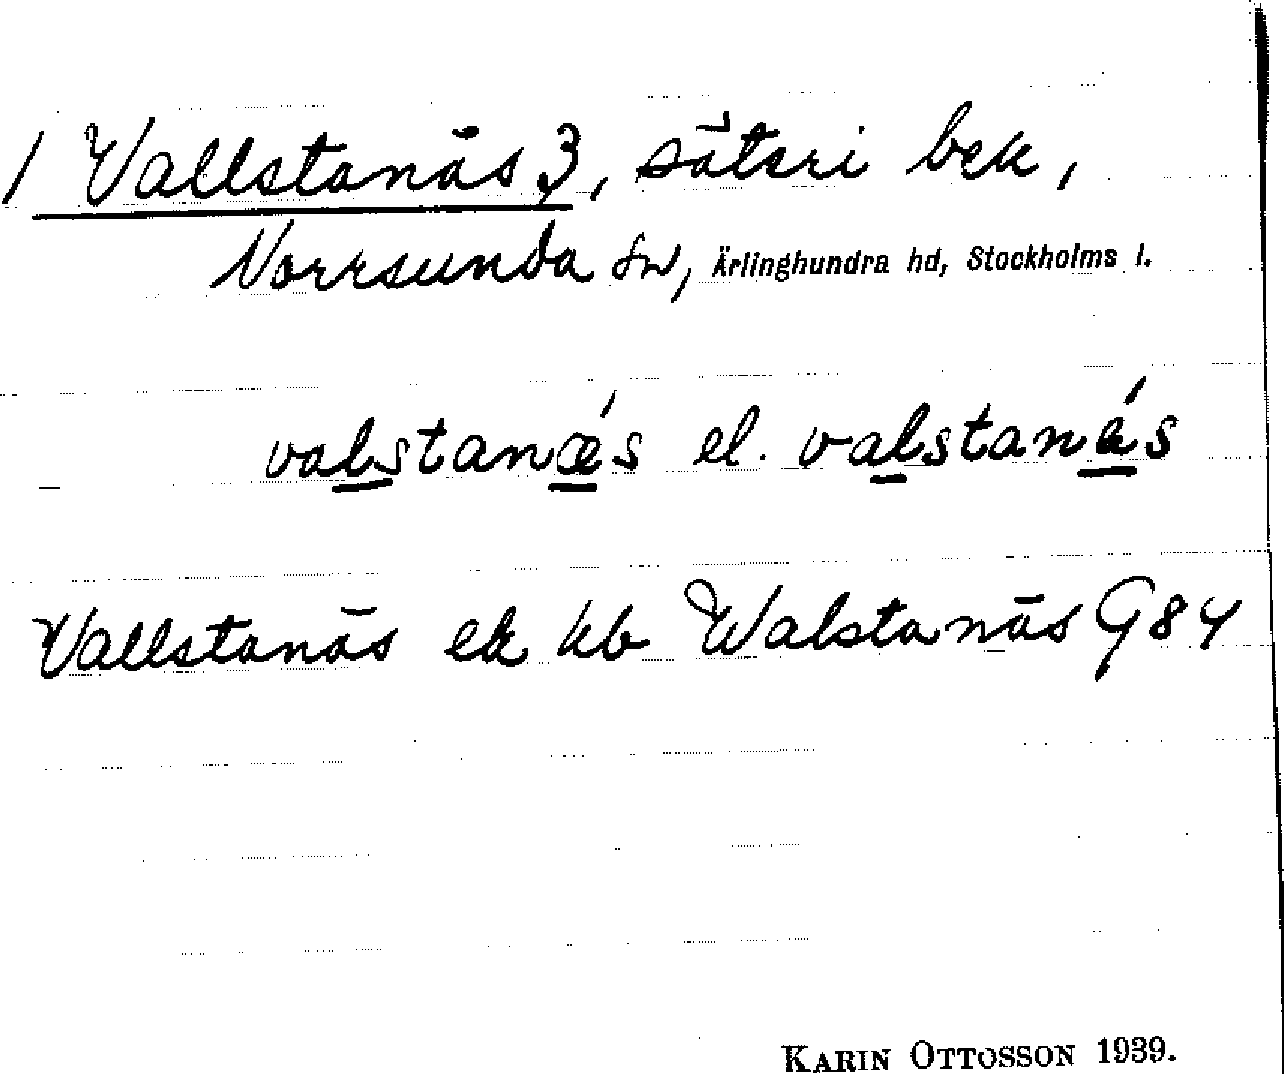 / Vallstanäs 3, säteri bek,
Norrsunda sn, Ärlinghundra hd, Stockholms l.
valstanǽs el. valstanás
Vallstanäs ek kb Walstanäs G84
KARIN OTTOSSON 1939.